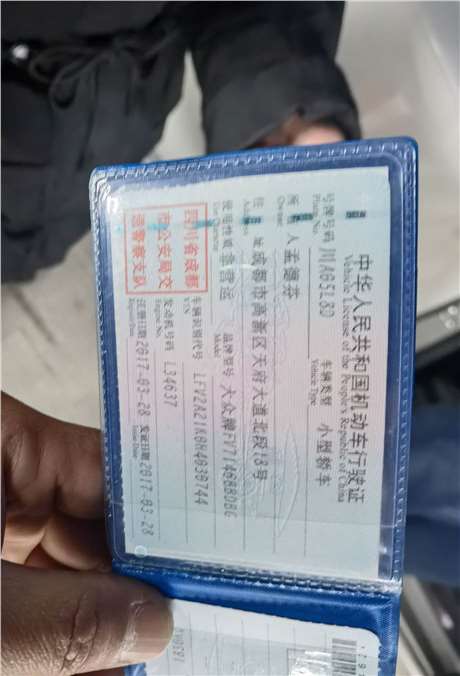 中华人民共和国机动车行驶证
Vehicle License of the People's Republic of China
号牌号码 川AG5L80 车辆类型 小型轿车
Plate No. Vehicle Type
所有人 孟德芬
Owner
住 址 成都市高新区天府大道北段18号
Address
使用性质 非营运 品牌型号 大众牌FV7146BBDBG
Use Character Model
四川省成都
市公安局交
通警察支队
车辆识别代号 LFV2A21K0H4039744
VIN
发动机号码 L34637
Engine No.
注册日期 2017-03-28 发证日期 2017-03-28
Register Date Issue Date